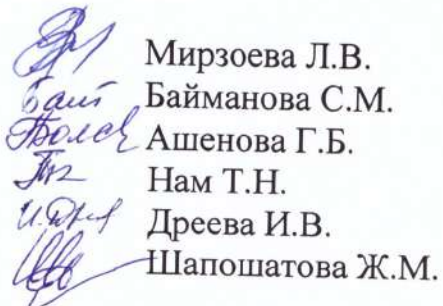 Мирзоева Л.В.
Байманова С.М.
Ашенова Г.Б.
Нам Т.Н.
Дреева И.В.
Шапошатова Ж.М.